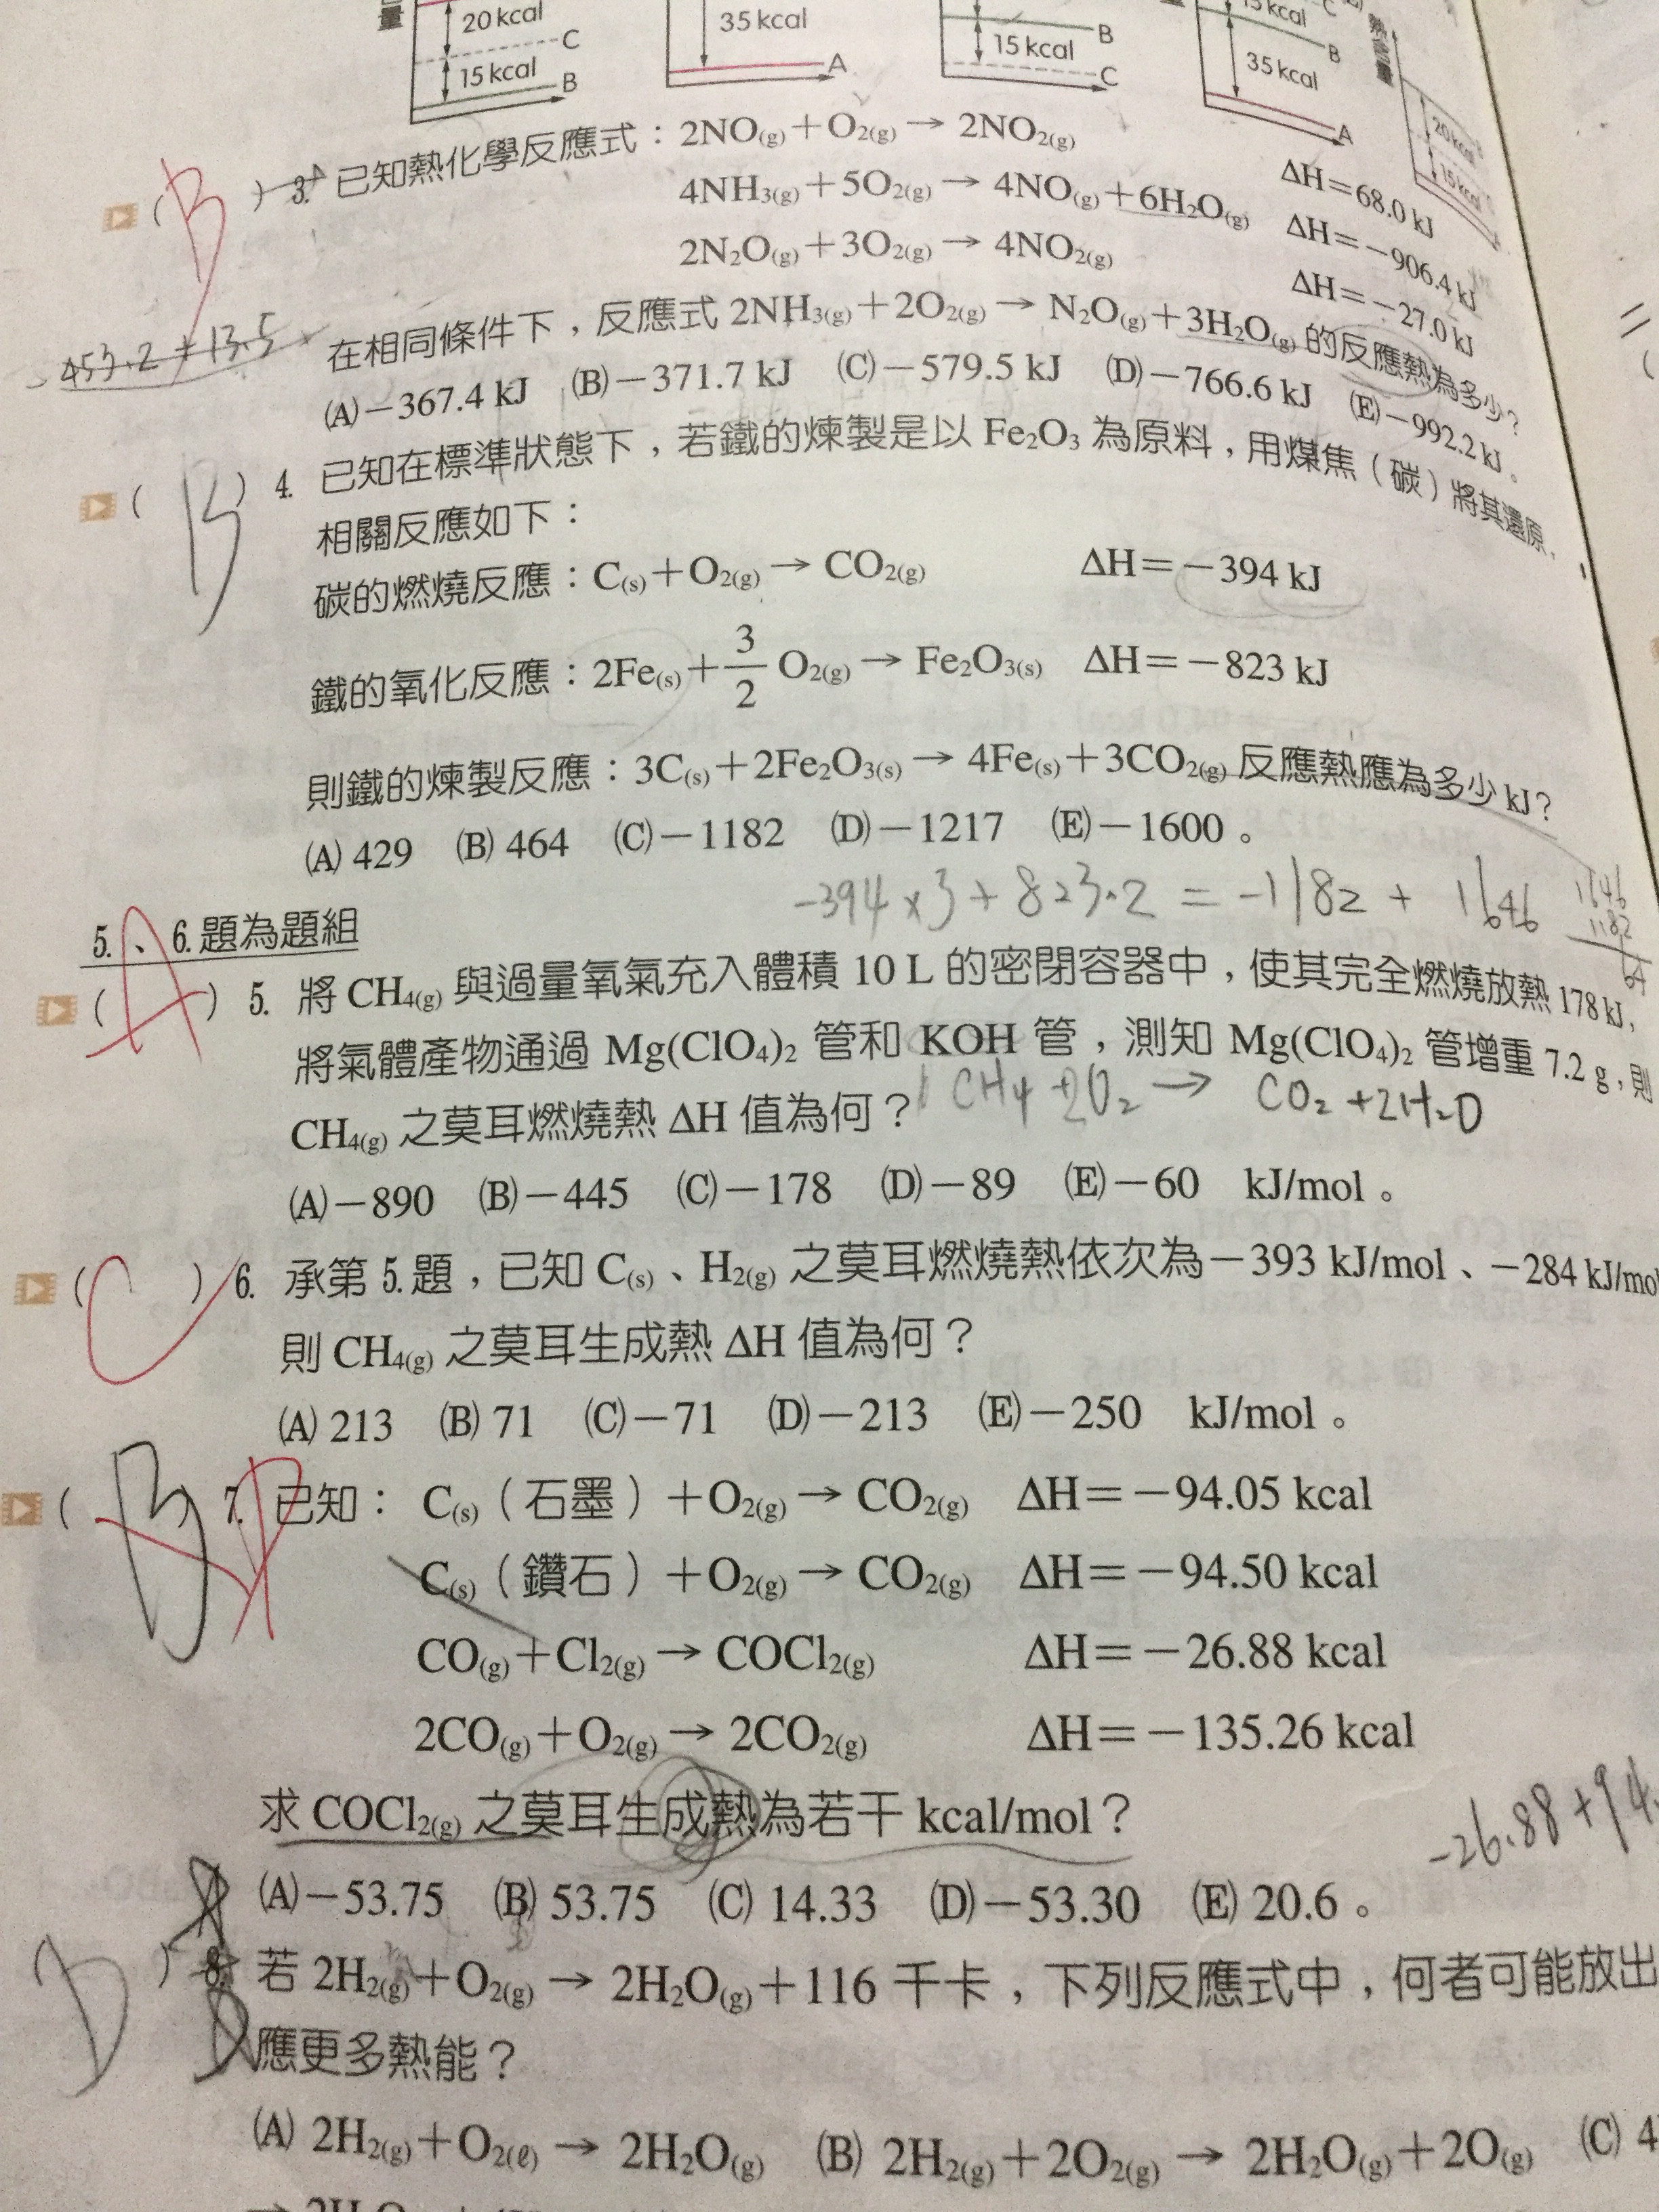 量
20 kcal
C
15 kcal
B
35 kcal
A
B
15 kcal
C
15 kcal
C
B
35 kcal
A
熱含量
20 kcal
15 kcal
B
( ) 3. 已知熱化學反應式：2NO(g)+O2(g)→2NO2(g) ΔH=68.0 kJ
4NH3(g)+5O2(g)→4NO(g)+6H2O(g) ΔH=-906.4 kJ
2N2O(g)+3O2(g)→4NO2(g) ΔH=-27.0 kJ
453.2 + 13.5
在相同條件下，反應式 2NH3(g)+2O2(g)→N2O(g)+3H2O(g) 的反應熱為多少？
(A)-367.4 kJ (B)-371.7 kJ (C)-579.5 kJ (D)-766.6 kJ (E)-992.2 kJ。
( B ) 4. 已知在標準狀態下，若鐵的煉製是以 Fe2O3 為原料，用煤焦（碳）將其還原，
相關反應如下：
碳的燃燒反應：C(s)+O2(g)→CO2(g) ΔH=-394 kJ
鐵的氧化反應：2Fe(s)+3/2 O2(g)→Fe2O3(s) ΔH=-823 kJ
則鐵的煉製反應：3C(s)+2Fe2O3(s)→4Fe(s)+3CO2(g) 反應熱應為多少 kJ？
(A) 429 (B) 464 (C)-1182 (D)-1217 (E)-1600。
-394×3+823.2 = -1182 + 1646
1646
1182
64
5.、6.題為題組
( A ) 5. 將 CH4(g) 與過量氧氣充入體積 10 L 的密閉容器中，使其完全燃燒放熱 178 kJ，
將氣體產物通過 Mg(ClO4)2 管和 KOH 管，測知 Mg(ClO4)2 管增重 7.2 g，則
CH4(g) 之莫耳燃燒熱 ΔH 值為何？
1 CH4+2O2→CO2+2H2O
(A)-890 (B)-445 (C)-178 (D)-89 (E)-60 kJ/mol。
( C ) 6. 承第 5.題，已知 C(s)、H2(g) 之莫耳燃燒熱依次為-393 kJ/mol、-284 kJ/mo
則 CH4(g) 之莫耳生成熱 ΔH 值為何？
(A) 213 (B) 71 (C)-71 (D)-213 (E)-250 kJ/mol。
( B ) 7. 已知： C(s)（石墨）+O2(g)→CO2(g) ΔH=-94.05 kcal
C(s)（鑽石）+O2(g)→CO2(g) ΔH=-94.50 kcal
CO(g)+Cl2(g)→COCl2(g) ΔH=-26.88 kcal
2CO(g)+O2(g)→2CO2(g) ΔH=-135.26 kcal
求 COCl2(g) 之莫耳生成熱為若干 kcal/mol？
-26.88+94.
(A)-53.75 (B) 53.75 (C) 14.33 (D)-53.30 (E) 20.6。
D ) 8. 若 2H2(g)+O2(g)→2H2O(g)+116 千卡，下列反應式中，何者可能放出
應更多熱能？
(A) 2H2(g)+O2(ℓ)→2H2O(g) (B) 2H2(g)+2O2(g)→2H2O(g)+2O(g) (C) 4